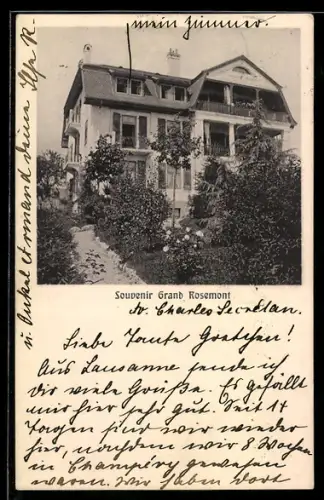 mein Zimmer.
Souvenir Grand Rosemont
Av. Charles Secretan.
Liebe Tante Gretchen!
Aus Lausanne sende ich
dir viele Grüße. Es gefällt
mir hier sehr gut. Seit 14
Tagen sind wir wieder
hier, nachdem wir 8 Wochen
in Champéry gewesen
waren. Wir haben dort
u. Onkel Hermann deine Ilse R-